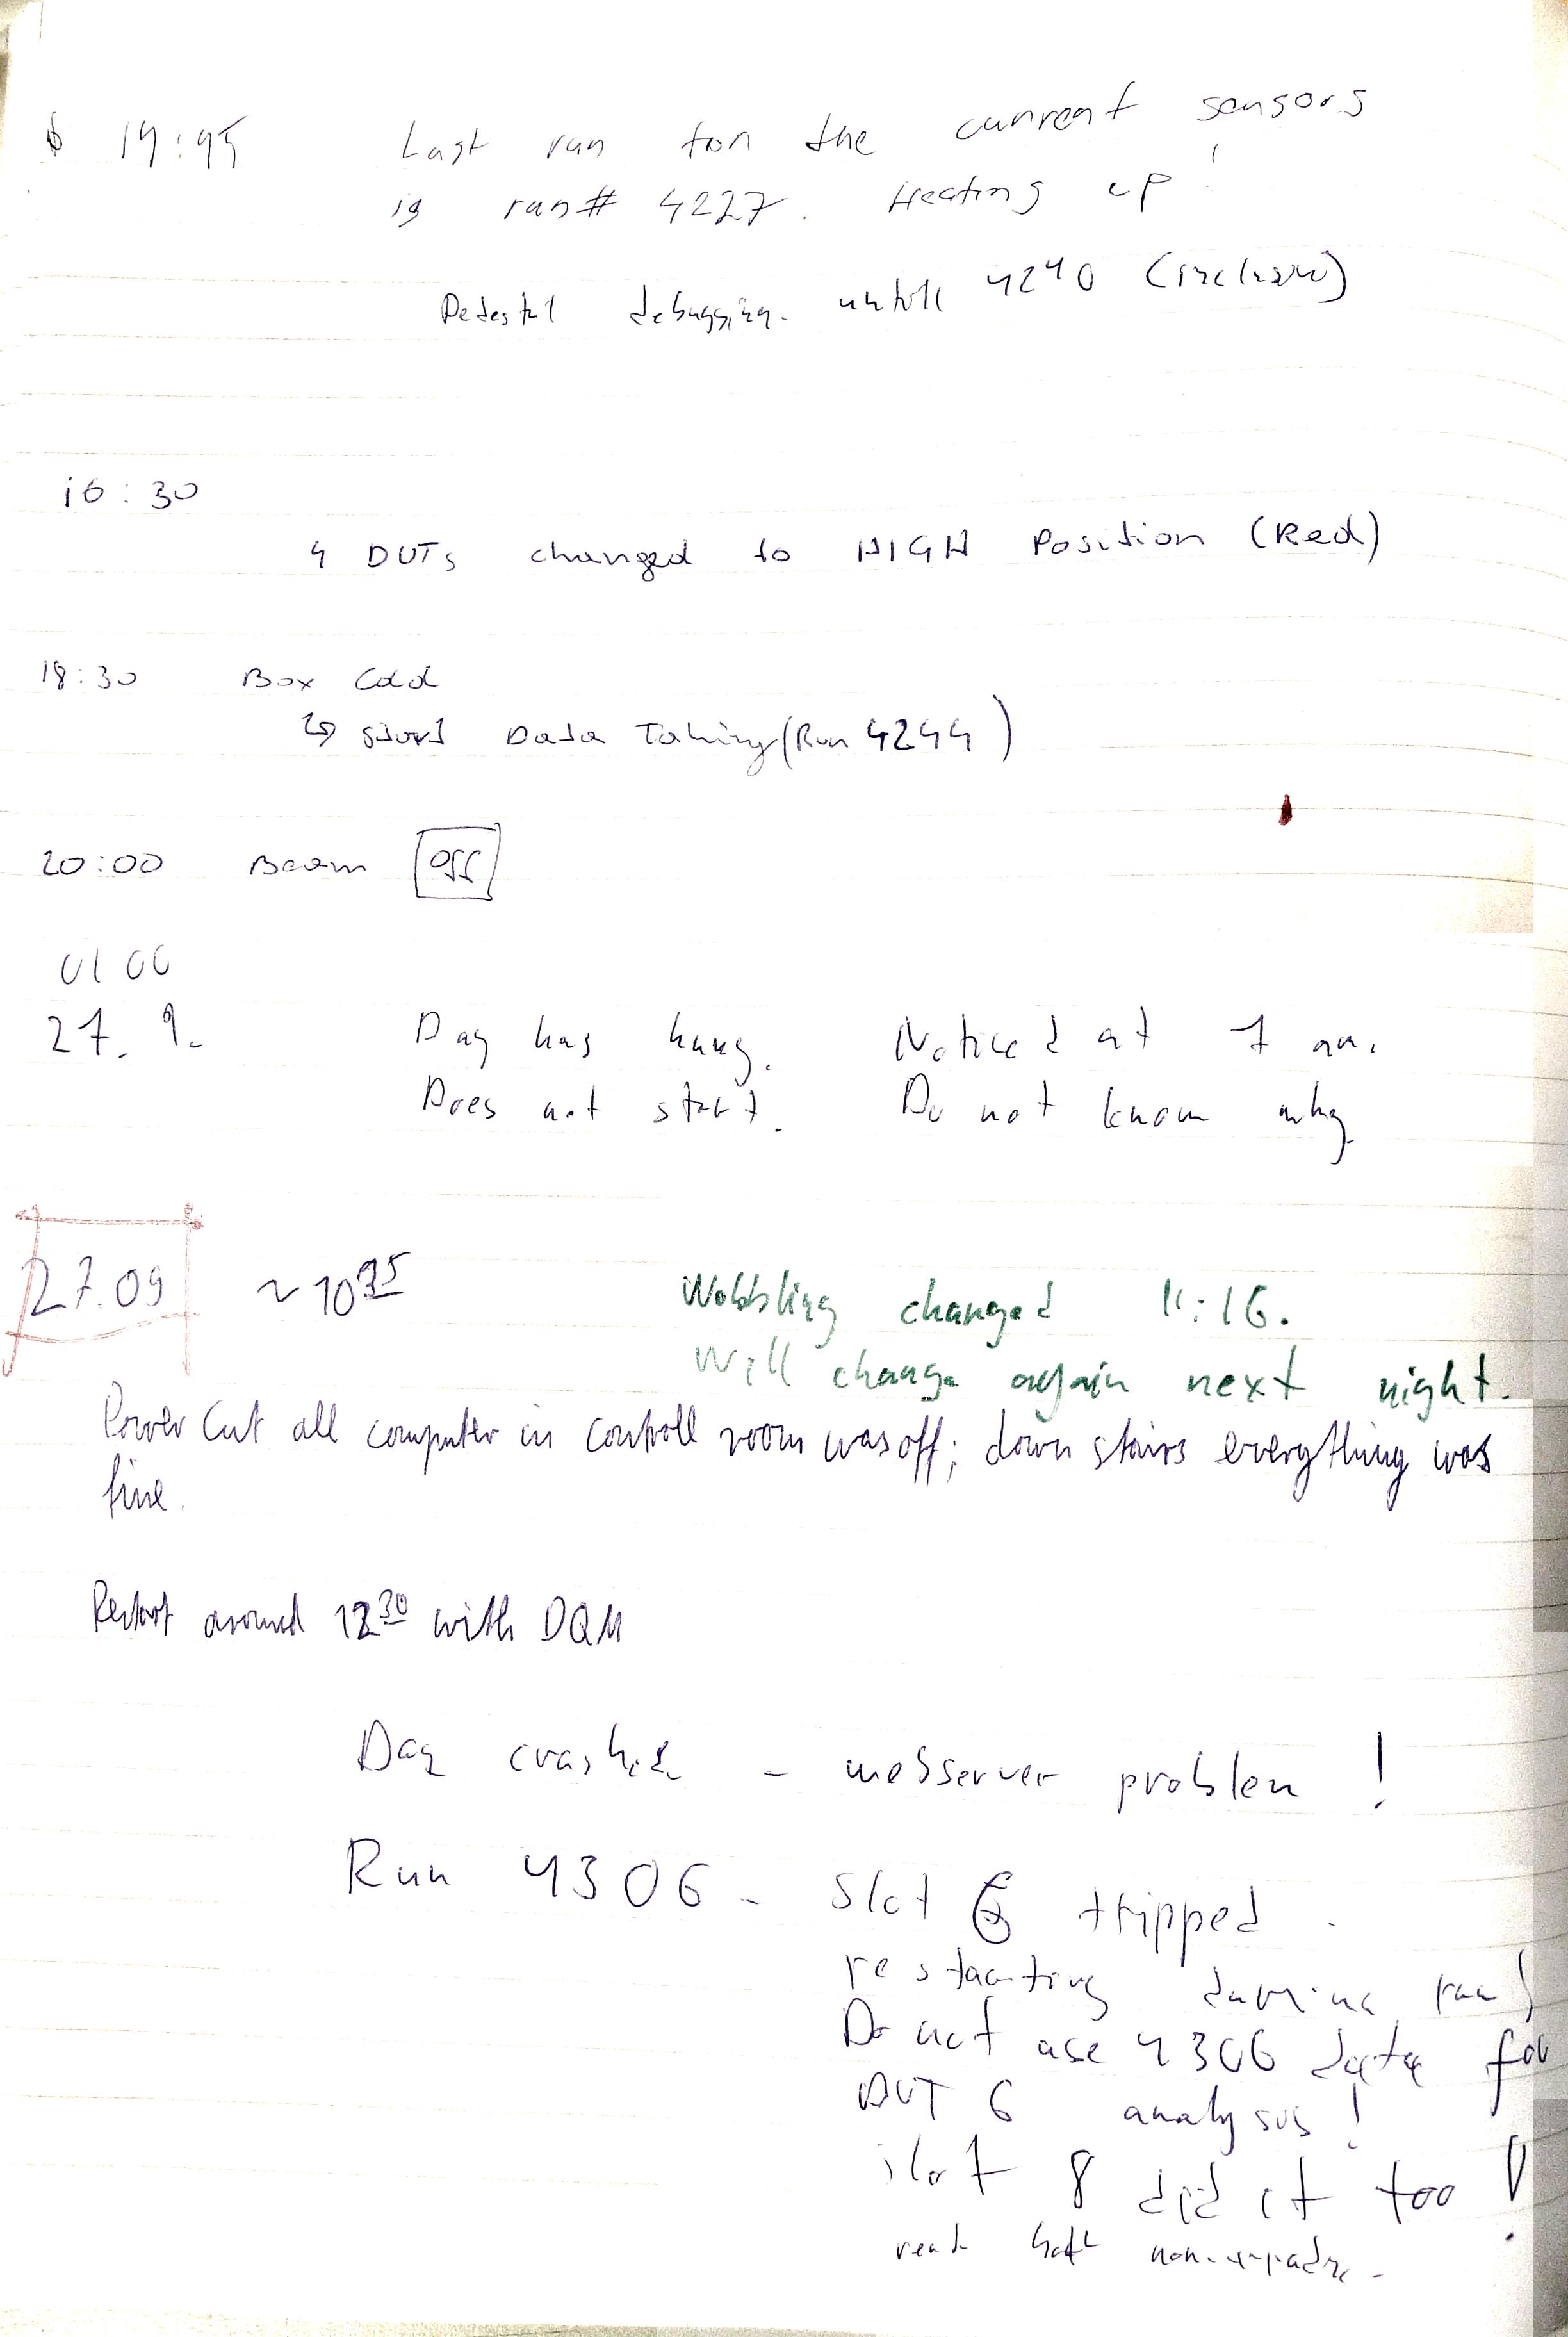 14:45 Last run for the current sensors
is run# 4227. Heating up!
Pedestal debugging. untill 4240 (inclusive)
16:30
4 DUTs changed to HIGH Position (Red)
18:30 Box Cold
↳ start Data Taking (Run 4244)
20:00 Beam off
01 00
27. 9. Daq has hung. Noticed at 7 am.
Does not start. Do not know why
27.09 ~ 10 45
Wobbling changed 11:16.
Will change again next night.
Power Cut all computer in controll room was off; down stairs everything was
fine.
Restart around 12 30 with DQM
Daq crashed - webserver problem!
Run 4306 - Slot 6 tripped.
restarting during run!
Do not use 4306 data for
DUT 6 analysis!
slot 8 did it too!